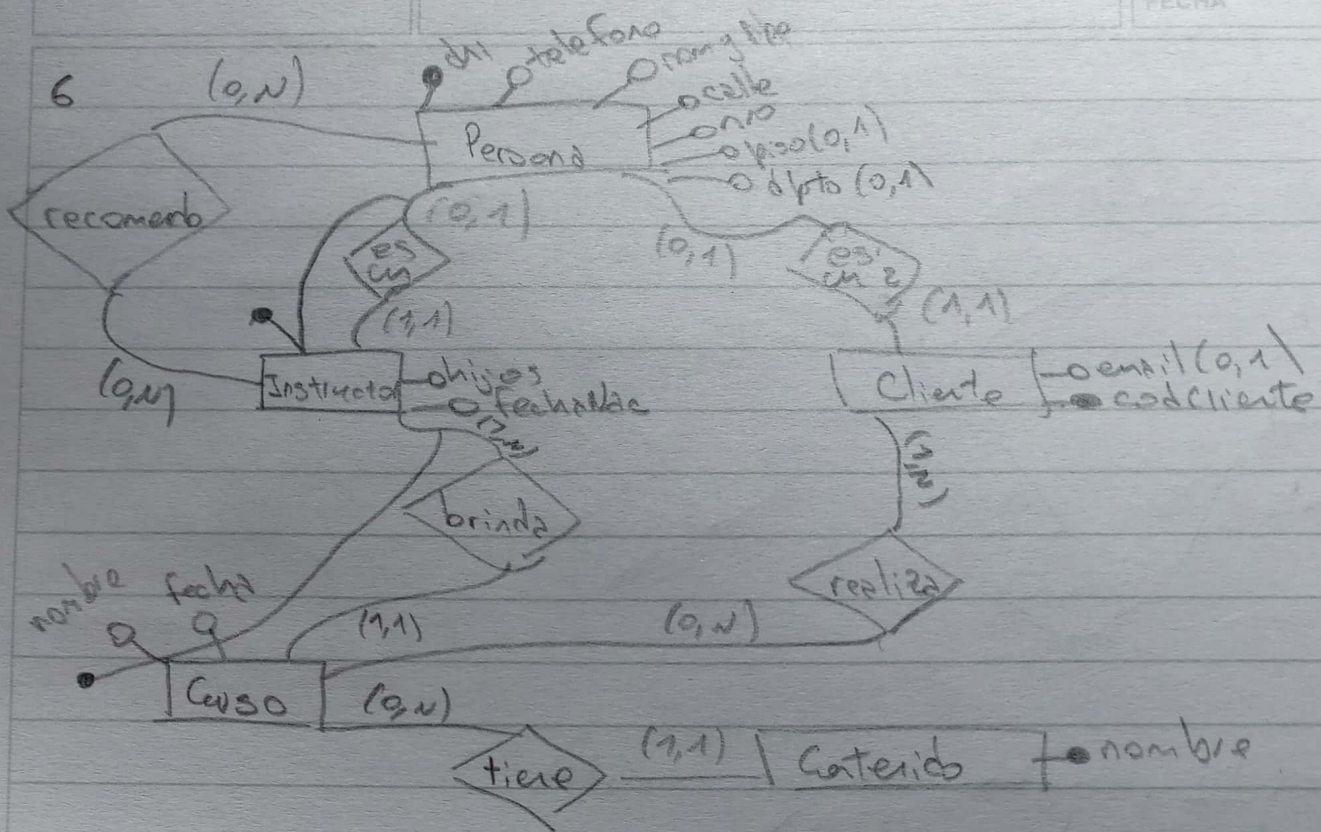 FECHA
6
(0,N)
dni
telefono
nomyape
calle
nro
piso(0,1)
dpto (0,1)
Persona
recomendo
(0,1)
es
un
(1,1)
(0,1)
es
un 2
(1,1)
(0,N)
Instructor
hijos
fechaNac
Cliente
email(0,1)
codCliente
(1,N)
(1,N)
brinda
realiza
nombre
fecha
(1,1)
(0,N)
Curso
(0,N)
tiene
(1,1)
Contenido
nombre